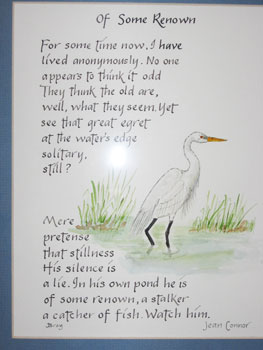 Of Some Renown
For some time now, I have
lived anonymously. No one
appears to think it odd
They think the old are,
well, what they seem. Yet
see that great egret
at the water's edge
solitary,
still?
Mere
pretense
that stillness
His silence is
a lie. In his own pond he is
of some renown, a stalker
a catcher of fish. Watch him.
Jean Connor